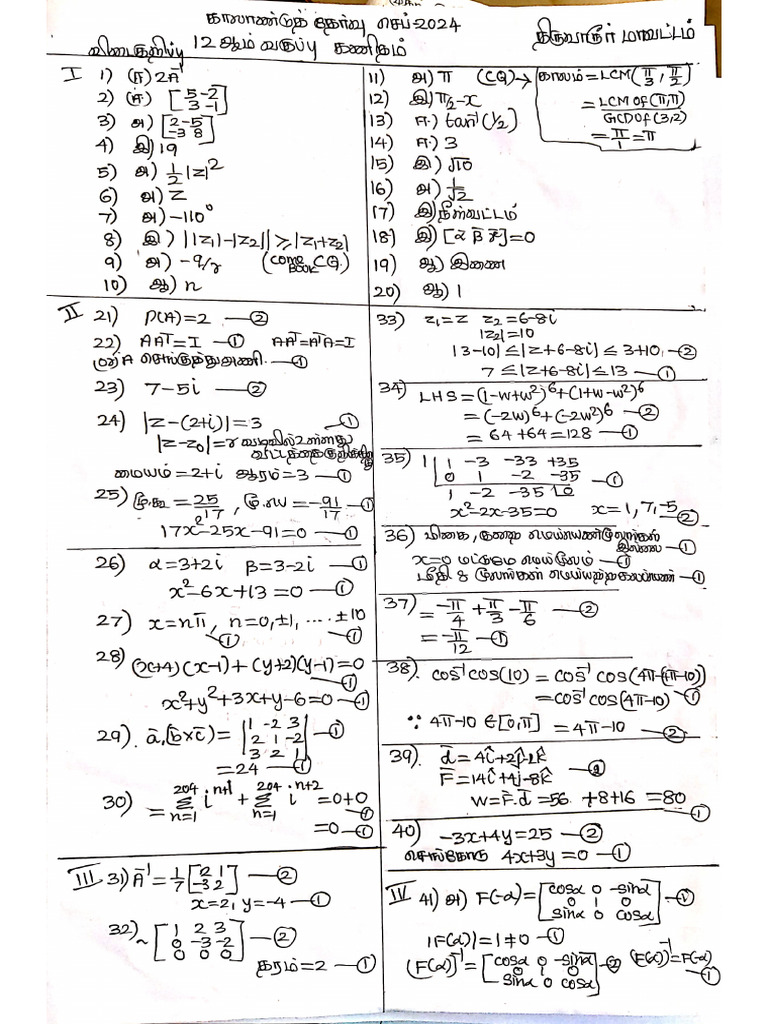 காலாண்டுத் தேர்வு செப்-2024
திருவாரூர் மாவட்டம்
விடைகுறிப்பு 12 ஆம் வகுப்பு கணிதம்
I 1) (ஈ) 2A⁻¹
2) (ஈ) [5 -2
3 -1]
3) அ) [2 -5
-3 8]
4) இ) 19
5) அ) 1/2 |z|²
6) அ) z
7) அ) -110°
8) இ) ||z₁|-|z₂|| ≥ |z₁+z₂|
9) அ) -q/r (COME BOOK CQ)
10) ஆ) n
11) அ) π (CQ) → காலம் = LCM(π/3, π/2)
= LCM of (π,π) / GCD of (3,2)
= π/1 = π
12) இ) π/2 - x
13) ஈ.) tan⁻¹(1/2)
14) ஈ.) 3
15) இ) √10
16) அ) 1/√2
17) இ) நீள்வட்டம்
18) இ) [α β γ] = 0
19) ஆ) இணை
20) ஆ) 1
II 21) ρ(A) = 2 — ②
22) AAᵀ = I — ① AAᵀ = AᵀA = I
(or) A செங்குத்து அணி. — ①
23) 7-5i — ②
24) |z-(2+i)| = 3 — ①
|z-z₀| = r வடிவில் உள்ளது
வட்டத்தை குறிக்கிறது
மையம் = 2+i ஆரம் = 3 — ①
25) மூ.கூ = 25/17, மூ.பெ = -91/17 — ①
17x²-25x-91 = 0 — ①
26) α = 3+2i β = 3-2i — ①
x²-6x+13 = 0 — ①
27) x = nπ, n = 0, ±1, .... ±10
① ①
28) (x+4)(x-1)+(y+2)(y-1) = 0
— ①
x²+y²+3x+y-6 = 0 — ①
29). a̅.(b̅×c̅) = |1 -2 3
2 1 -2
3 2 1| — ①
= 24 — ①
30) = Σ (n=1, 204) iⁿ⁺¹ + Σ (n=1, 204) iⁿ⁺² = 0+0
— ①
= 0 — ①
III 31) A⁻¹ = 1/7 [2 1
-3 2] — ②
x = 2, y = -4 — ①
32) ~ [1 2 3
0 -3 -2
0 0 0] — ②
தரம் = 2 — ①
33) z₁ = z z₂ = 6-8i
|z₂| = 10
|3-10| ≤ |z+6-8i| ≤ 3+10 — ②
7 ≤ |z+6-8i| ≤ 13 — ①
34) LHS = (1-w+w²)⁶+(1+w-w²)⁶
= (-2w)⁶+(-2w²)⁶ — ②
= 64+64 = 128 — ①
35) 1 | 1 -3 -33 +35
0 1 -2 -35 — ①
1 -2 -35 |0
x²-2x-35 = 0 x = 1, 7, -5 — ②
36) மிகை, குறை மெய்யெண் மூலங்கள்
இல்லை — ①
x=0 மட்டுமே மெய்மூலம் — ①
மீதி 8 மூலங்கள் மெய்யற்ற கலப்பெண் — ①
37) = -π/4 + π/3 - π/6 — ②
= -π/12 — ①
38). cos⁻¹cos(10) = cos⁻¹cos(4π-(4π-10))
= cos⁻¹cos(4π-10) — ①
∵ 4π-10 ∈ [0,π] = 4π-10 — ②
39). d̅ = 4î+2ĵ-2k̂
F̅ = 14î+4ĵ-8k̂ — ②
W = F̅.d̅ = 56 +8+16 = 80
— ①
40) -3x+4y = 25 — ②
செங்கோடு 4x+3y = 0 — ①
IV 41) அ) F(-α) = [cosα 0 -sinα
0 1 0
sinα 0 cosα] — ①
|F(α)| = 1 ≠ 0 — ①
(F(α))⁻¹ = [cosα 0 -sinα
0 1 0
sinα 0 cosα] — ② (F(α))⁻¹ = F(-α)
— ①